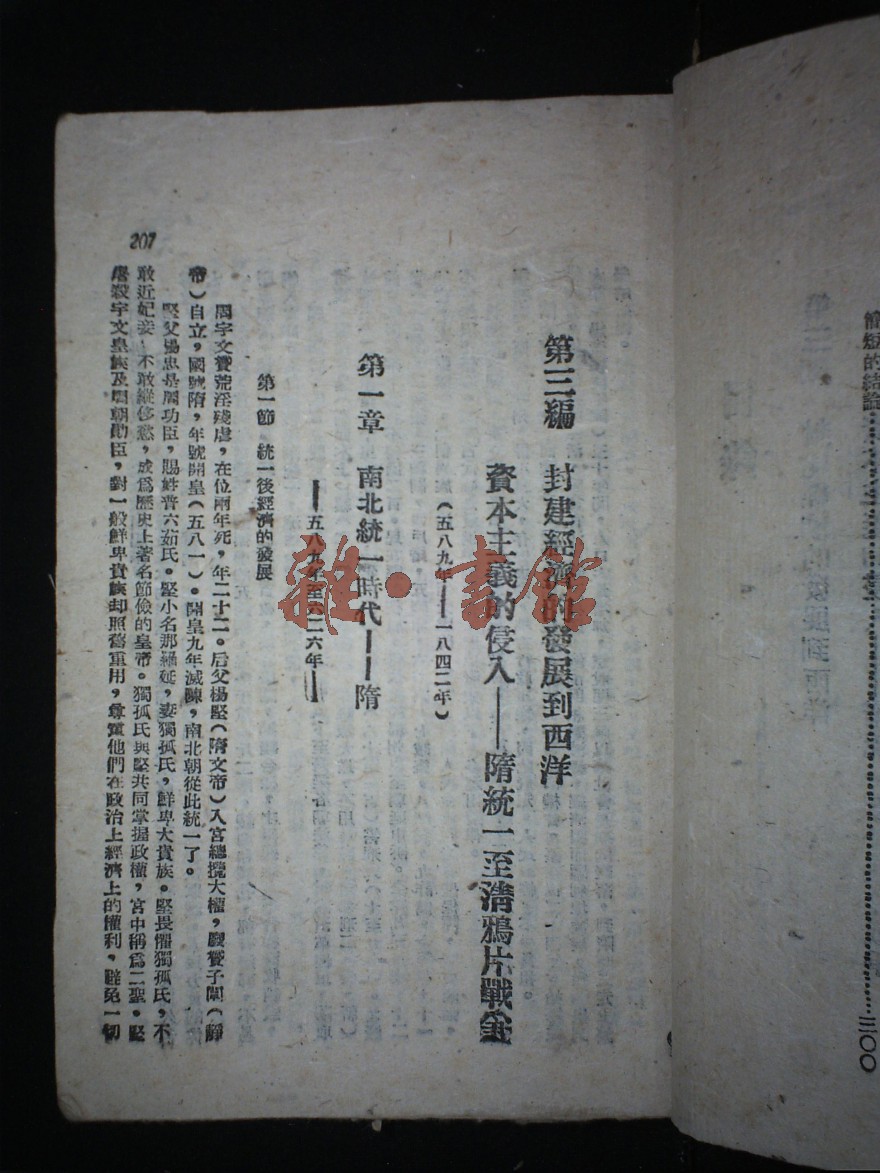 簡短的結論……三〇〇
第三編 封建經濟的發展到西洋
資本主義的侵入——隋統一至清鴉片戰爭
(五八九年——一八四二年)
第一章 南北統一時代——隋
——五八九年至六二六年——
第一節 統一後經濟的發展
周宇文贇荒淫殘虐,在位兩年死,年二十二。后父楊堅(隋文帝)入宮總攬大權,廢贇子闡(靜
帝)自立,國號隋,年號開皇(五八一)。開皇九年滅陳,南北朝從此統一了。
堅父楊忠是周功臣,賜姓普六茹氏。堅小名那羅延,妻獨孤氏,鮮卑大貴族。堅畏懼獨孤氏,不
敢近妃妾,不敢縱侈慾,成爲歷史上著名節儉的皇帝。獨孤氏與堅共同掌握政權,宮中稱爲二聖。堅
屠殺宇文皇族及周朝勛臣,對一般鮮卑貴族却照舊重用,尊重他們在政治上經濟上的權利,避免一切
207
雜·書館